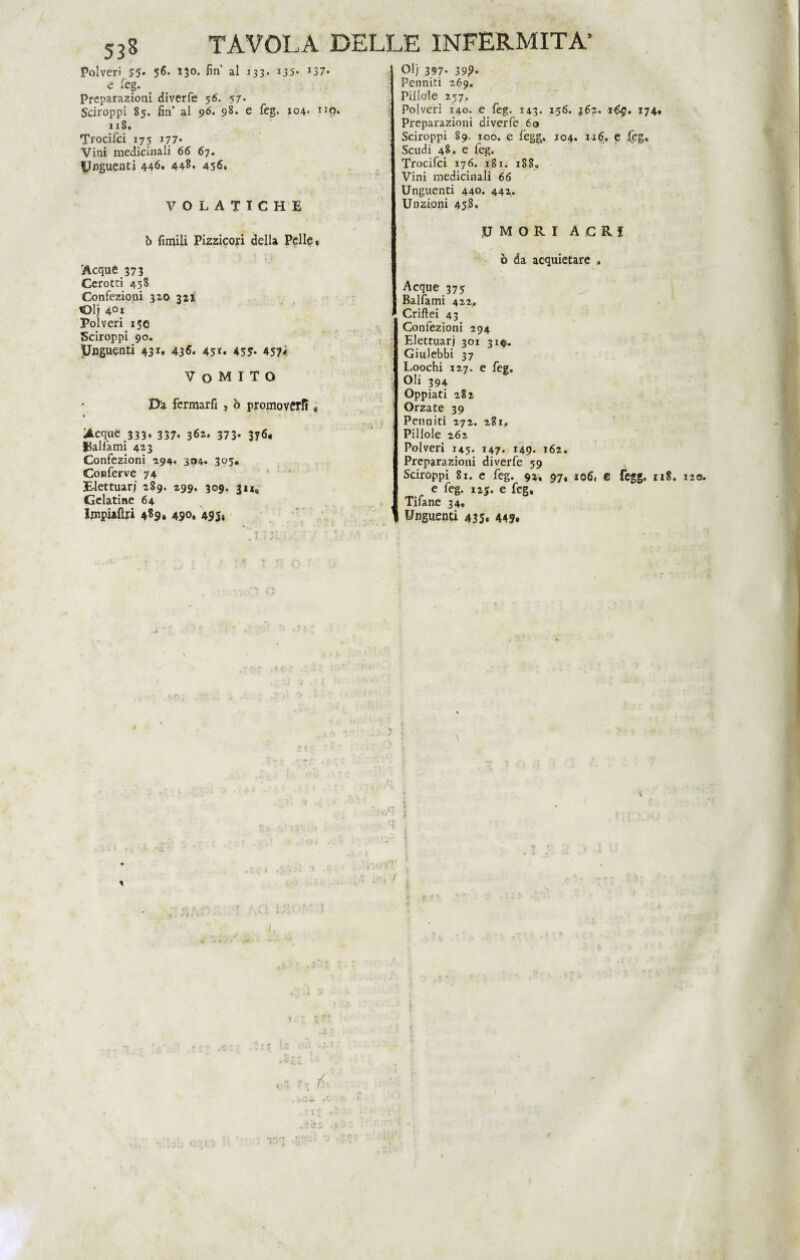 538 TAVOLA DELLE INFERMITA'
Polveri 55. 56. 130. fin' al 133. 135. 137.
e feg.
Preparazioni diverfe 56. 57.
Sciroppi 85. fin' al 96. 98. e feg. 104. 110.
118.
Trocifci 175 177.
Vini medicinali 66 67.
Unguenti 446. 448. 456.
VOLATICHE
ò fimili Pizzicori della Pelle.
Acque 373
Cerotti 458
Confezioni 320 321
Olj 401
Polveri 150
Sciroppi 90.
Unguenti 431. 436. 451. 455. 457.
VOMITO
Da fermarfi , ò promoverfi .
Acque 333. 337. 362. 373. 376.
Balfami 423
Confezioni 294. 304. 305.
Conferve 74
Elettuarj 289. 299. 309. 311.
Gelatine 64
Impiaftri 489. 490. 495.
Olj 397. 399.
Penniti 269.
Pillole 257.
Polveri 140. e feg. 143. 156. 162. 169. 174.
Preparazioni diverfe 60
Sciroppi 89. 100. e fegg. 104. 116. e feg.
Scudi 48. e feg.
Trocifci 176. 181. 188.
Vini medicinali 66
Unguenti 440. 442.
Unzioni 458.
UMORI ACRI
ò da acquietare .
Acque 375
Balfami 422.
Criftei 43
Confezioni 294
Elettuarj 301 310.
Giulebbi 37
Loochi 127. e feg.
Oli 394
Oppiati 282
Orzate 39
Penniti 272. 281.
Pillole 262
Polveri 145. 147. 149. 162.
Preparazioni diverfe 59
Sciroppi 81. e feg. 92. 97. 106. e fegg. 118. 120.
e feg. 125. e feg.
Tifane 34.
Unguenti 435. 449.